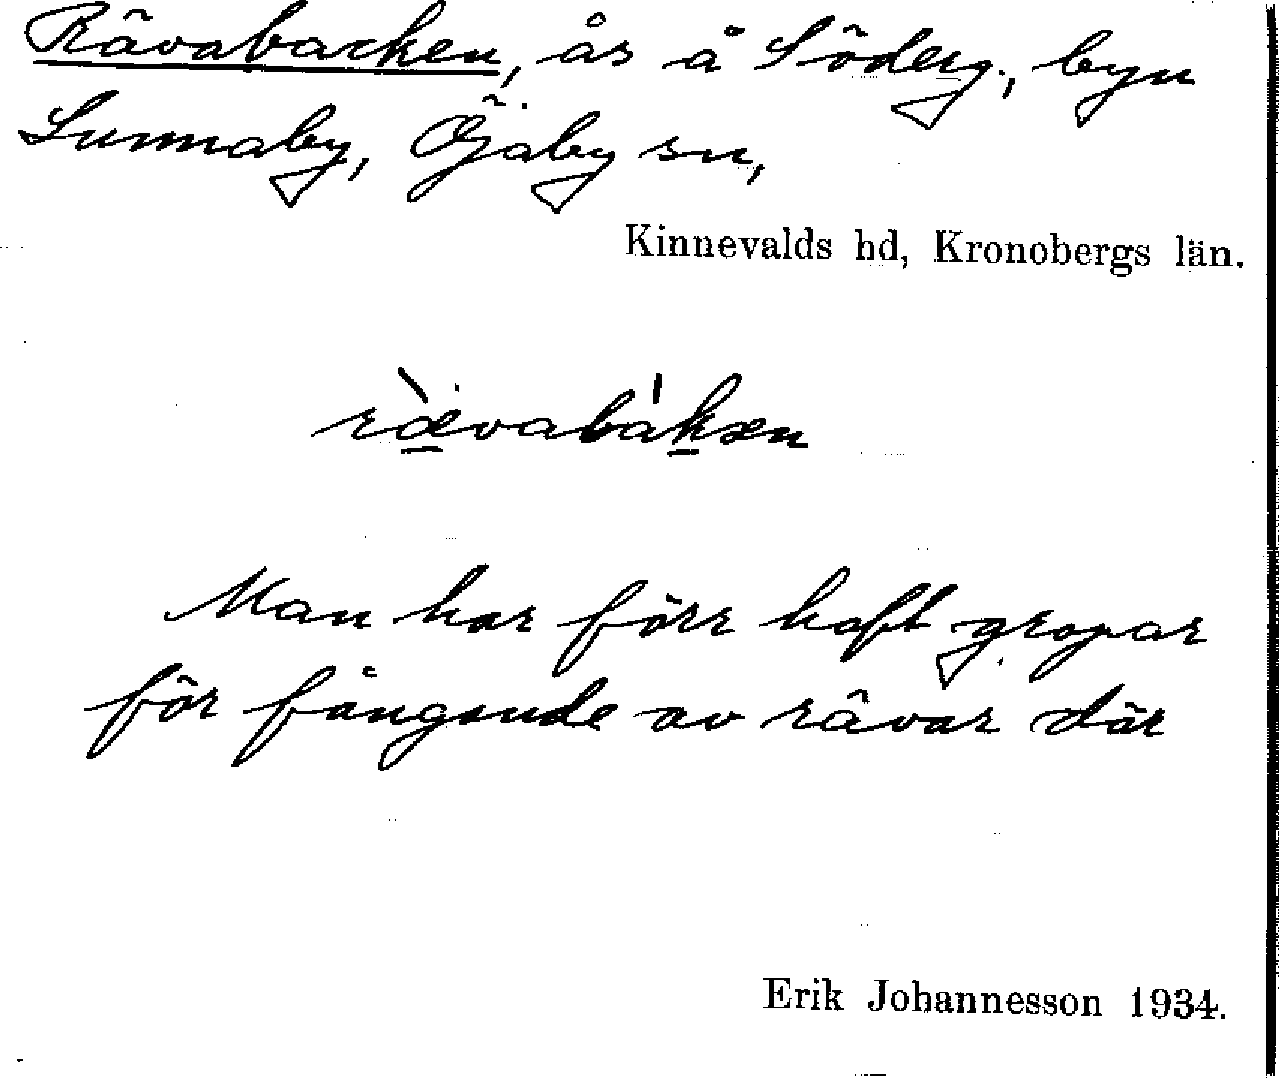 Rävabacken, ås å Söderg., byn
Lunnaby, Öjaby sn,
Kinnevalds hd, Kronobergs län.
rævabàkæn
Man har förr haft gropar
för fångande av rävar där
Erik Johannesson 1934.